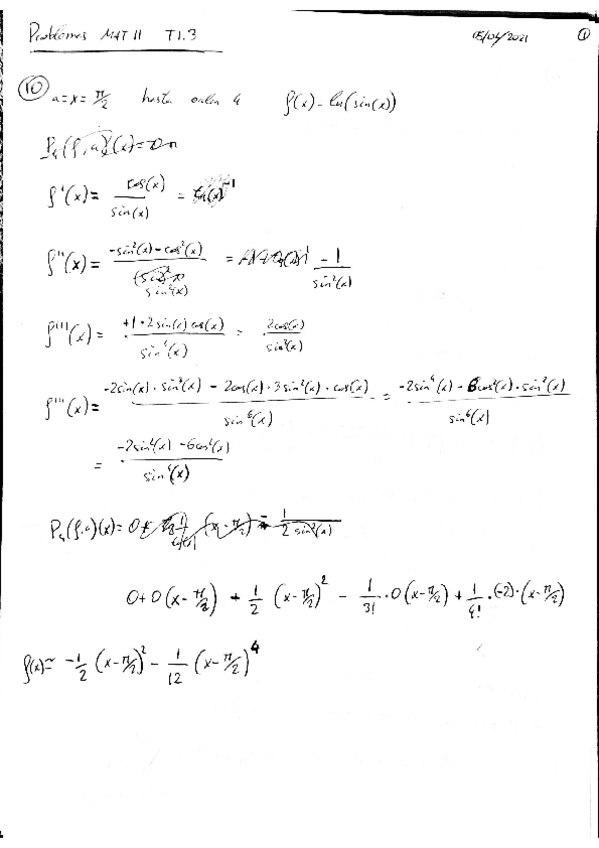 Problemas MAT II T1.3 05/04/2021 1
10 a=x=π/2 hasta orden 4 f(x)=ln(sin(x))
P₄(f,a)(x)=
f'(x)= cos(x)/sin(x) =
f''(x)= (-sin²(x)-cos²(x))/sin²(x) = -1/sin²(x)
f'''(x)= (+1·2sin(x)cos(x))/sin⁴(x) = 2cos(x)/sin³(x)
f''''(x)= (-2sin(x)·sin³(x) - 2cos(x)·3sin²(x)·cos(x))/sin⁶(x) = (-2sin⁴(x) - 6cos²(x)·sin²(x))/sin⁶(x)
= (-2sin²(x) -6cos²(x))/sin⁴(x)
P₄(f,a)(x)= 0+ (x-π/2) = 1/(2 sin²(x))
0+0(x-π/2) + 1/2 (x-π/2)² - 1/3! ·0(x-π/2) + 1/4! ·(-2)·(x-π/2)
f(x)≃ -1/2 (x-π/2)² - 1/12 (x-π/2)⁴